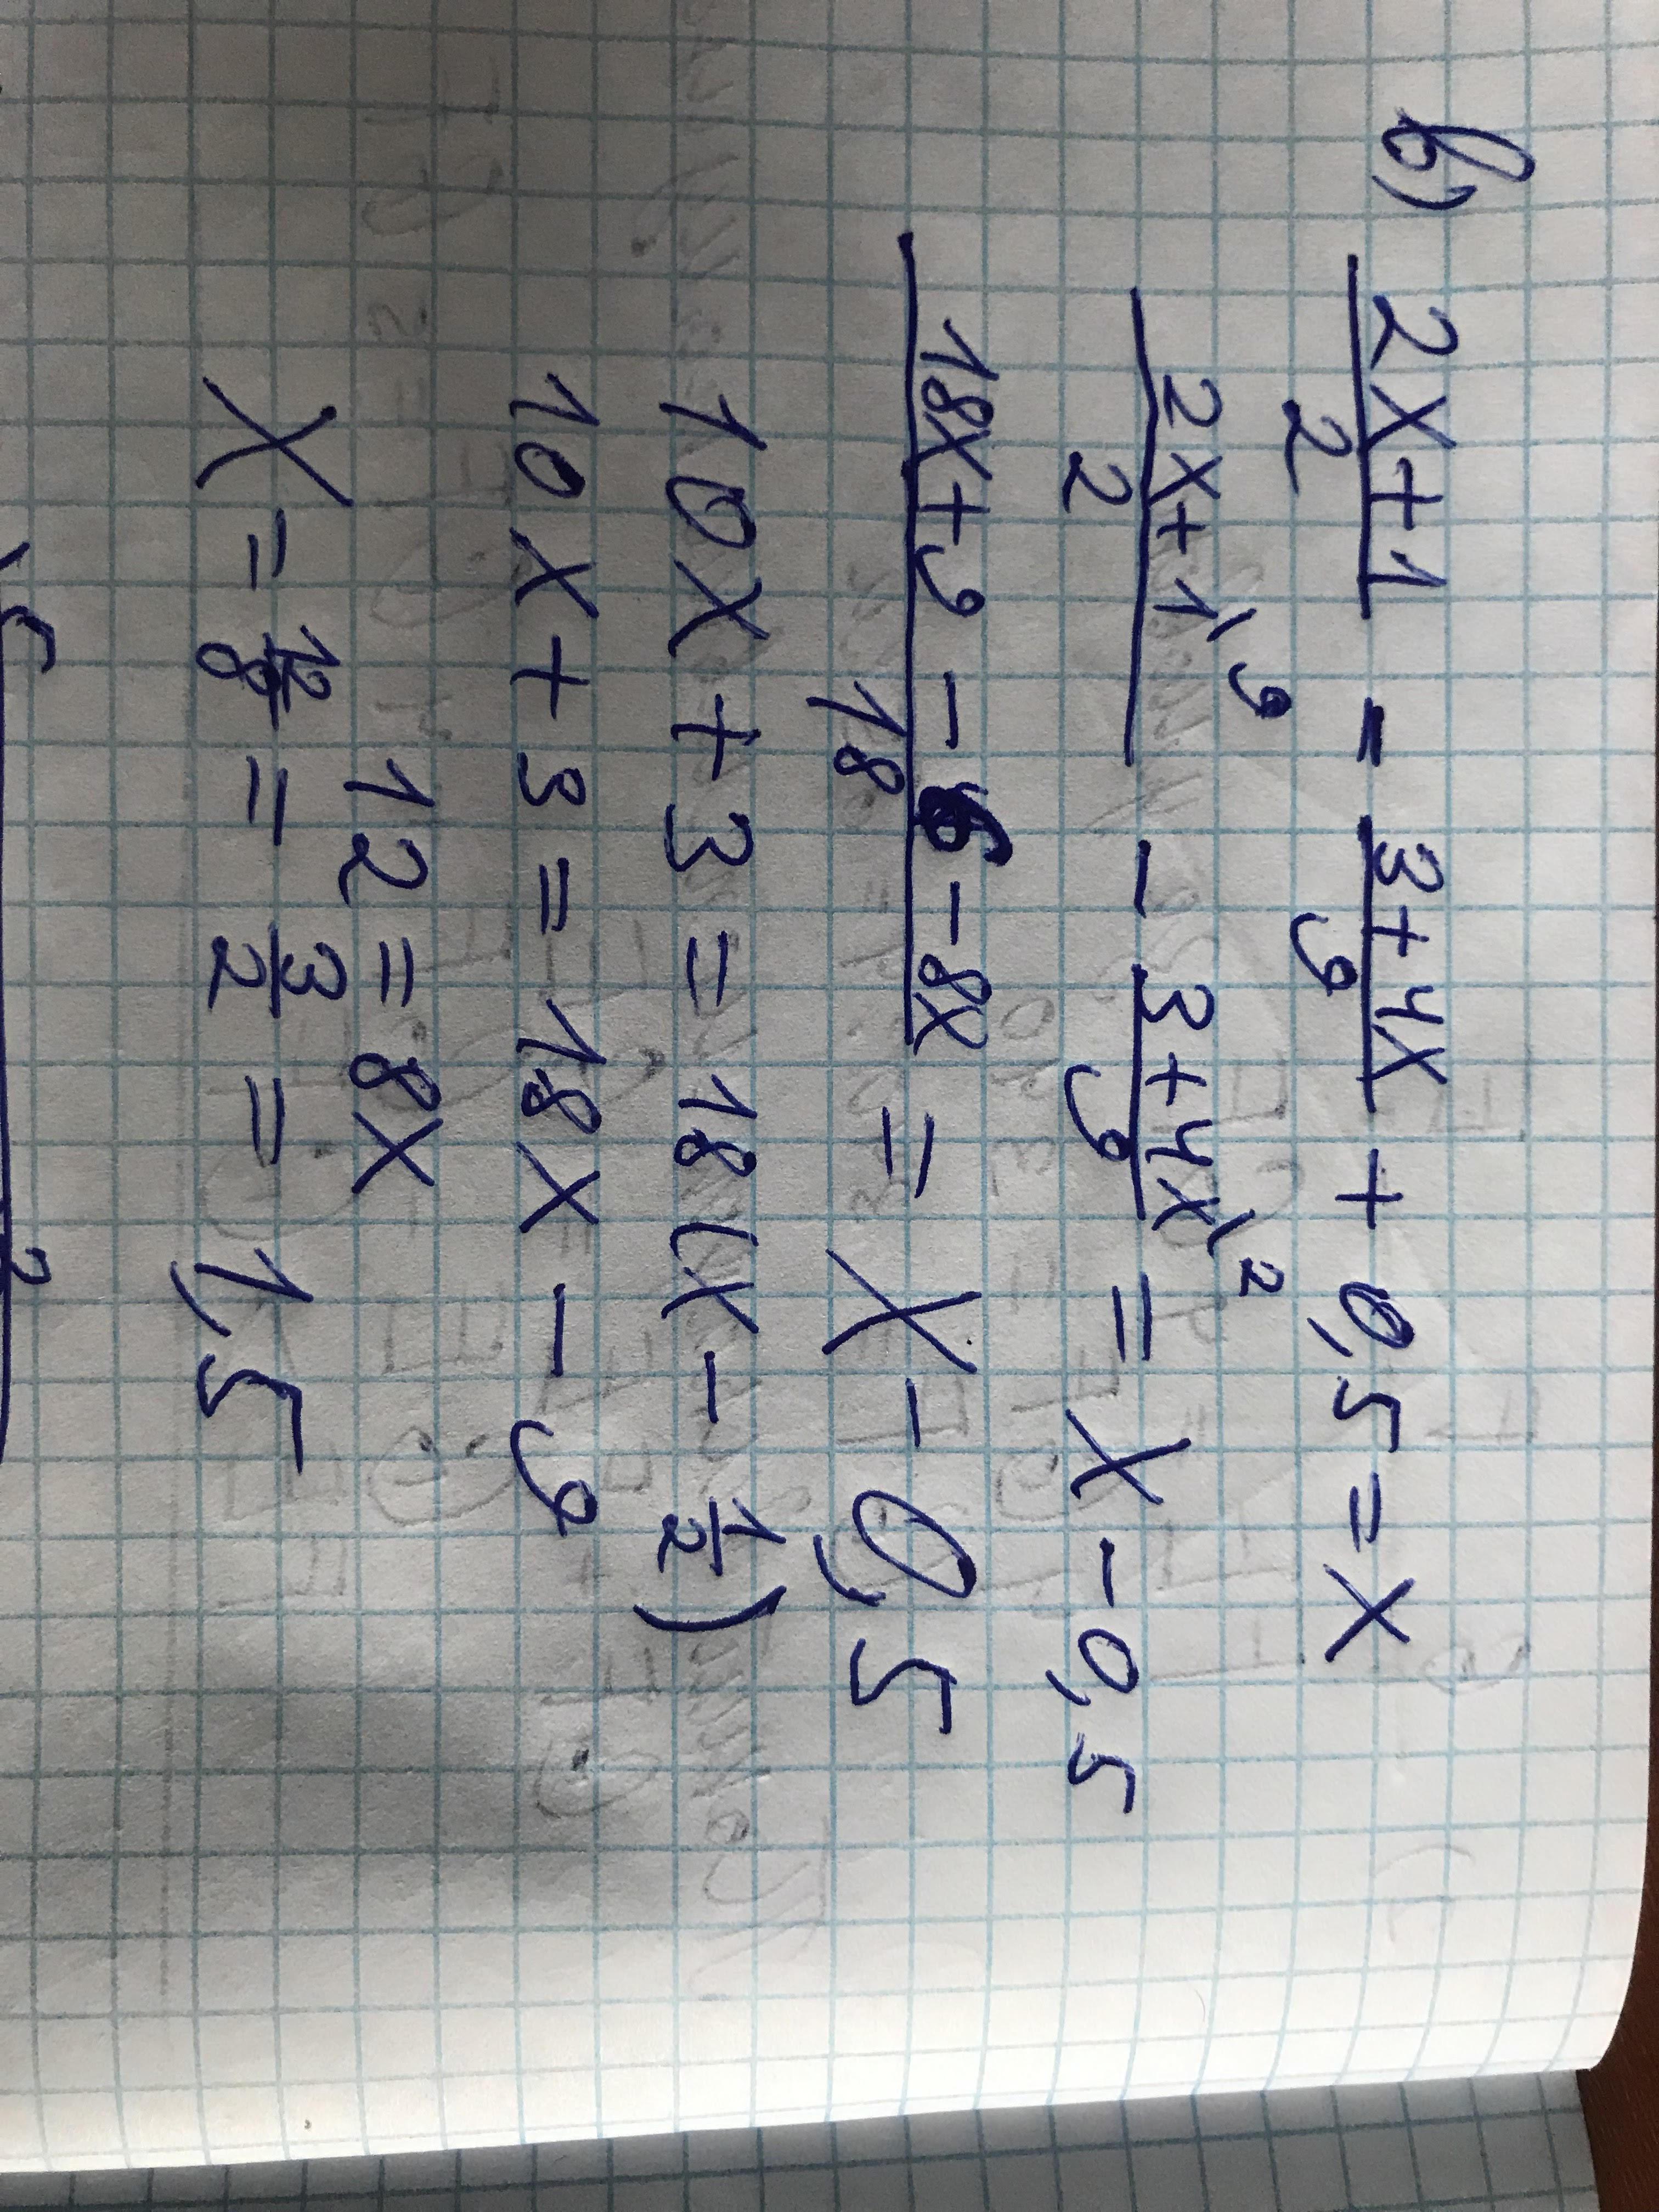 в) (2x+1)/2 = (3+4x)/9 + 0,5 = x
(2x+1)/2 \9 - (3+4x)/9 \2 = x - 0,5
(18x+9 - 6 - 8x)/18 = x - 0,5
10x + 3 = 18 (x - 1/2)
10x + 3 = 18x - 9
12 = 8x
x = 12/8 = 3/2 = 1,5